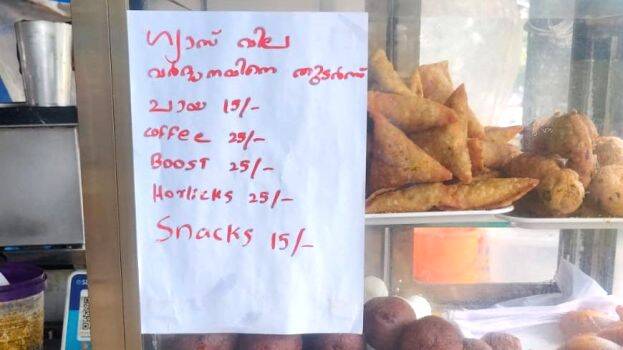 ഗ്യാസ് വില
വർദ്ധനവിനെ തുടർന്ന്
ചായ 15/-
coffee 25/-
BOOST 25/-
Horlicks 25/-
Snacks 15/-